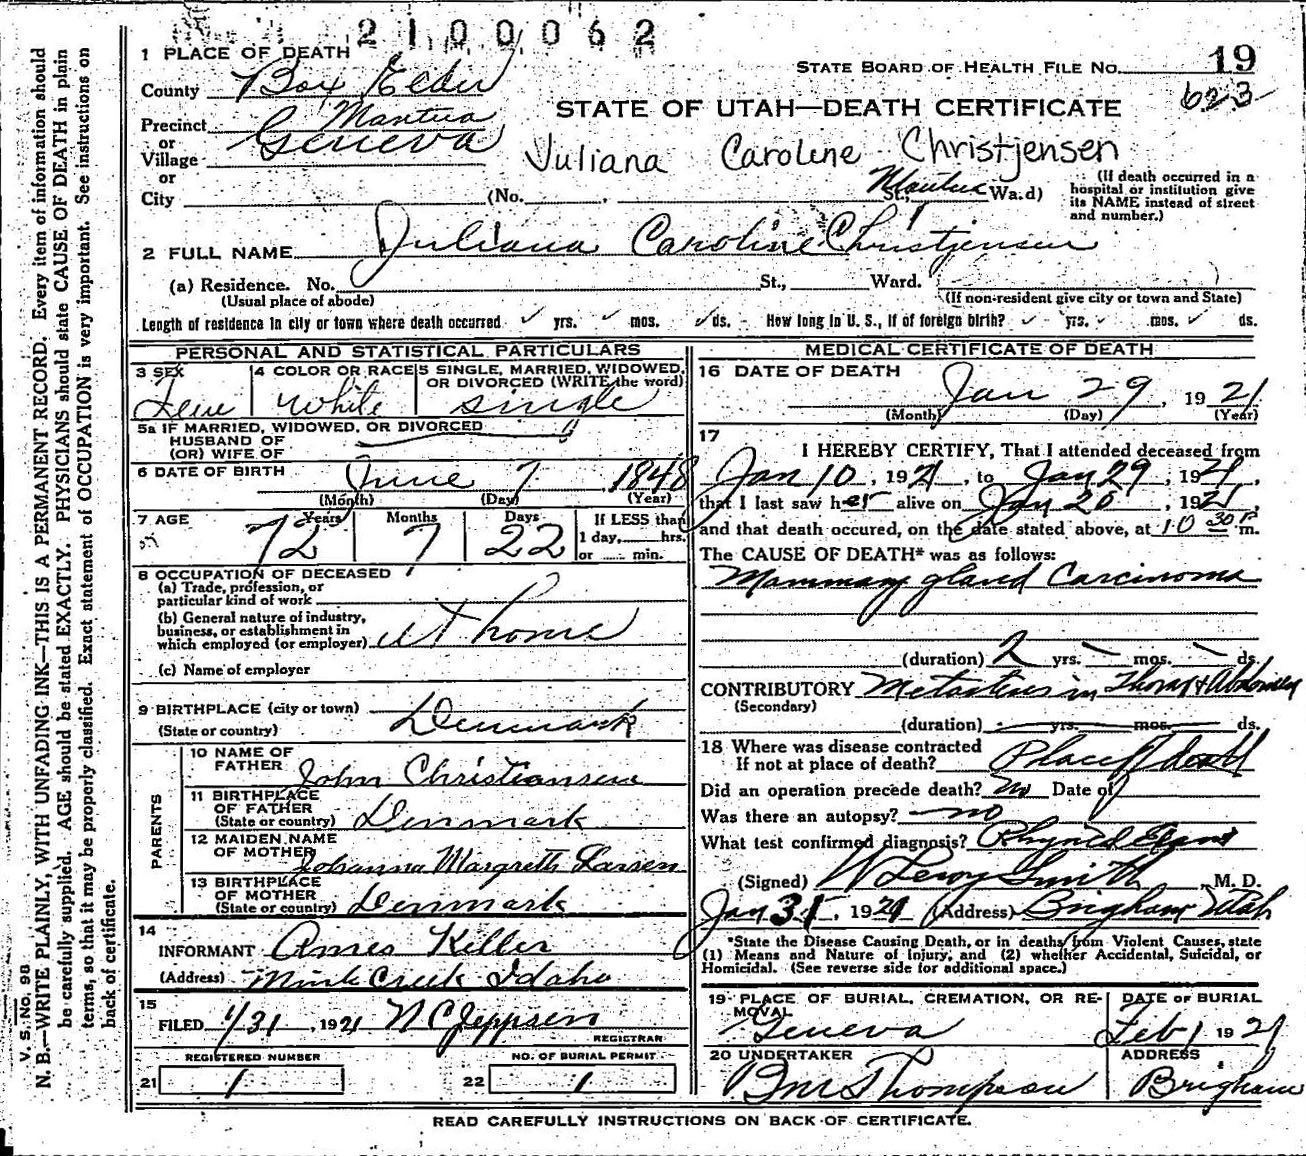 2100062
1 PLACE OF DEATH
STATE BOARD OF HEALTH FILE No. 19
County Box Elder
623
STATE OF UTAH—DEATH CERTIFICATE
Precinct Mantua
or Geneva
Village
Juliana Caroline Christjensen
or
City (No. , St., Mantua Wa.d)
(If death occurred in a hospital or institution give its NAME instead of street and number.)
2 FULL NAME Juliana Caroline Christjensen
(a) Residence. No. St., Ward.
(Usual place of abode) (If non-resident give city or town and State)
Length of residence in city or town where death occurred yrs. mos. ds. How long in U. S., if of foreign birth? yrs. mos. ds.
PERSONAL AND STATISTICAL PARTICULARS
3 SEX
4 COLOR OR RACE White
5 SINGLE, MARRIED, WIDOWED, OR DIVORCED (WRITE the word) single
5a IF MARRIED, WIDOWED, OR DIVORCED
HUSBAND OF
(OR) WIFE OF
6 DATE OF BIRTH June 7, 1848
(Month) (Day) (Year)
7 AGE 72 Years 7 Months 22 Days
If LESS than
1 day, hrs.
or min.
8 OCCUPATION OF DECEASED
(a) Trade, profession, or
particular kind of work
(b) General nature of industry,
business, or establishment in
which employed (or employer) at home
(c) Name of employer
9 BIRTHPLACE (city or town)
(State or country) Denmark
PARENTS
10 NAME OF
FATHER John Christiansen
11 BIRTHPLACE
OF FATHER
(State or country) Denmark
12 MAIDEN NAME
OF MOTHER Johanna Margreth Larsen
13 BIRTHPLACE
OF MOTHER
(State or country) Denmark
14
INFORMANT Ames Keller
(Address) Mink Creek Idaho
15
FILED 1/31, 1921 N C Jeppsen
REGISTRAR
REGISTERED NUMBER NO. OF BURIAL PERMIT
21 1 22 1
MEDICAL CERTIFICATE OF DEATH
16 DATE OF DEATH Jan 29, 1921
(Month) (Day) (Year)
17
I HEREBY CERTIFY, That I attended deceased from
Jan 10, 1921, to Jan 29, 1921,
that I last saw her alive on Jan 20, 1921,
and that death occured, on the date stated above, at 10 30 P. m.
The CAUSE OF DEATH* was as follows:
Mammary gland Carcinoma
(duration) 2 yrs. mos. ds.
CONTRIBUTORY Metastises in Thorax & Abdomen
(Secondary)
(duration) yrs. mos. ds.
18 Where was disease contracted
If not at place of death? Place of death
Did an operation precede death? No Date of
Was there an autopsy? no
What test confirmed diagnosis?
(Signed) W Leroy Smith, M. D.
Jan 31, 1921 (Address) Brigham Utah
*State the Disease Causing Death, or in deaths from Violent Causes, state
(1) Means and Nature of Injury; and (2) whether Accidental, Suicidal, or
Homicidal. (See reverse side for additional space.)
19 PLACE OF BURIAL, CREMATION, OR RE-
MOVAL Geneva
DATE OF BURIAL
Feb 1 1921
20 UNDERTAKER
Thompson
ADDRESS
Brigham
READ CAREFULLY INSTRUCTIONS ON BACK OF CERTIFICATE.
V. S. No. 98
N. B.—WRITE PLAINLY, WITH UNFADING INK—THIS IS A PERMANENT RECORD. Every item of information should
be carefully supplied. AGE should be stated EXACTLY. PHYSICIANS should state CAUSE OF DEATH in plain
terms, so that it may be properly classified. Exact statement of OCCUPATION is very important. See instructions on
back of certificate.